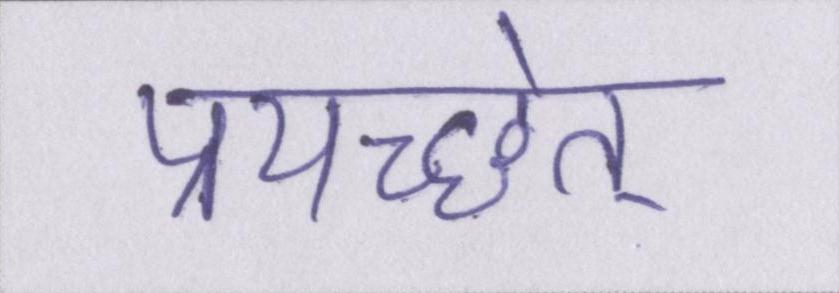 प्रयच्छेत्